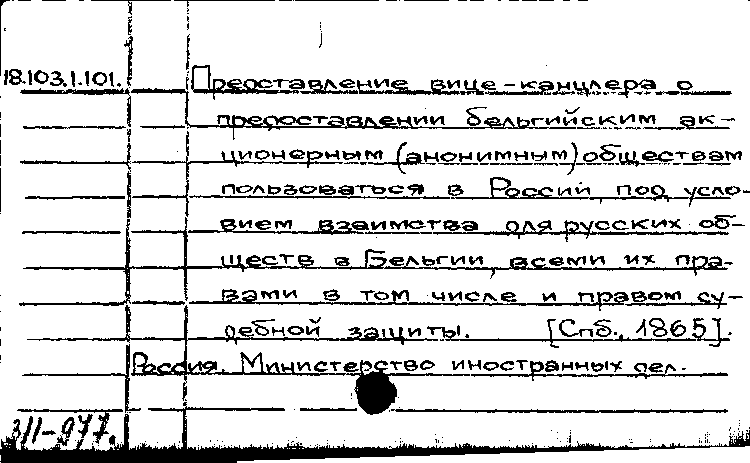 18.103.1.101. Представление вице-канцлера о
предоставлении бельгийским ак-
ционерным (анонимным) обществам
пользоваться в России, под усло-
вием взаимства для русских об-
ществ в Бельгии, всеми их пра-
вами в том числе и правом су-
дебной защиты. [Спб., 1865].
Россия. Министерство иностранных дел.
3/1-977.